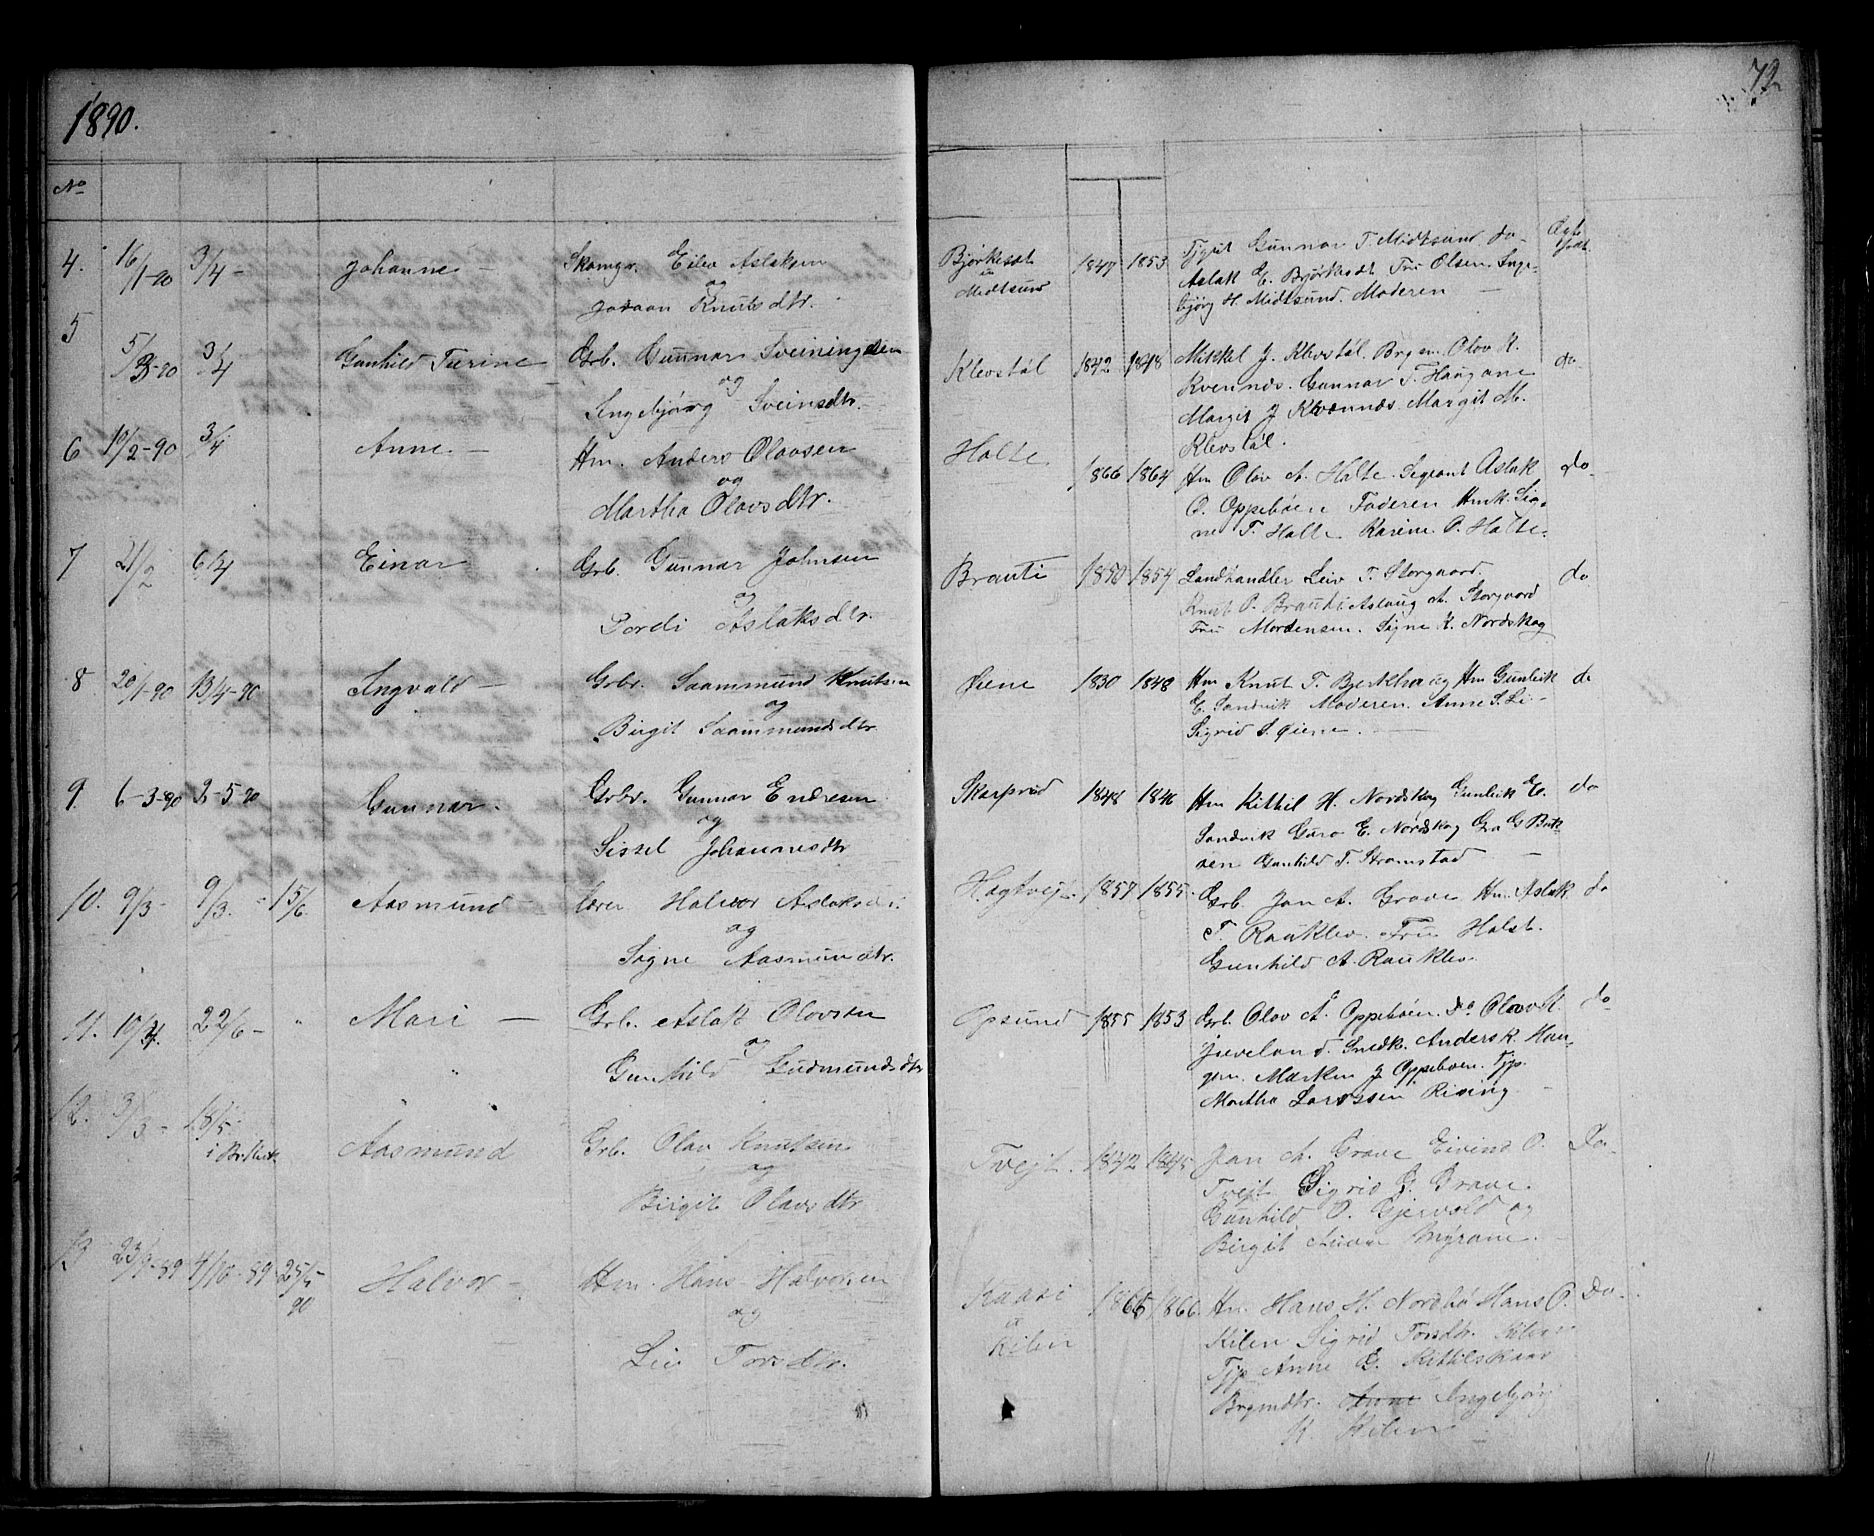 1890.
72
No
4. 16/1-90 3/4 - Johanne - Skomgr. Eilev Aslaksen
og
Joraan Knutsdtr.
Bjørkesæt
Midtsund
1847 1853 Gunnar T. Midtsund do-
Aslak E. Bjørkesæt Fru Olsen. Inge-
bjørg H. Midtsund. Moderen -
Ægte
født.
5 5/3-90 3/4 Gunhild Turine Grb. Gunnar Sveiningsen
og
Ingebjørg Sveinsdtr.
Klevstøl 1842 1848 Mikkel J. Klevstøl. Brgm. Olov K. do
Kvennes. Gunnar T. Haugane
Margit J Kvennes Margit M.
Klevstøl.
6 10/2-90 3/4 Anne. - Hm. Anders Olavsen
og
Martha Olavsdtr.
Holte 1866 1864 Hm Olav A. Holte. Sergeant Aslak do-
O. Oppebøen Faderen Hmk. Sig-
ne T. Holte Karine O. Holte.
7 21/2 6/4 Einar Grb. Gunnar Johnsen
og
Pordi Aslaksdtr.
Brauti 1850 1854 Landhandler Leiv T. Storgaard. do
Knut P. Brauti Aslaug A. Storgaard
Fru Mortensen. Signe K. Nordskog
8 20/1-90 13/4-90 Ingvald - Grbr. Saammund Knutsen
og
Birgit Saammundsdtr
Øiene 1830 1848 Hm Knut T. Bjerkha og Hm Gunleik do
E. Sandvik Moderen. Anne S. Li-
Sigrid S. Øiene. -
9. 6-3-90 2-5-90 Gunnar. Grbr. Gunnar Endresen
og
Sissel Johannesdtr
Skarprud 1848 1846 Hm Kittil H. Nordskog Gunleik E. do
Sandvik Guro E. Nordskog Gro G Bak-
ken Gunhild T. Strømstad -
10. 9/3- 9/3. - 15/6. Aasmund - Lærer Halvor Aslaksen
og
Signe Aasmundtr.
Høgtvejt. 1857 1855. Grb. Jon A. Grave Hm. Aslak do
T. Rauklev. Fru Holst.
Gunhild A. Rauklev.
11. 10/4. 22/6- Mari - Grb. Aslak Olovsen
og
Gunhild Gudmundsdtr
Opsund 1855 1853 Grb. Olov A. Oppebøen. Do Olov H. do
Juveland. Snedk. Anders K. Hau-
gen. Marken J Oppeboen. Tjp.
Martha Larsen Rising. -
12. 3/3- 18/5-
Aasmund Grb. Olav Knutsen
og
Birgit Olavsdtr
Tvejt. 1842 1845 Jon A. Grave Eivind O. Do-
Tvejt Sigrid G. Grave.
Gunhild O. Gjervold og
Birgit Myrane.
13 23/9-89 4/10-89 25/5-
90
Halvor - Hm. Hans Halvorsen
og
Liv Torsdtr.
Kaasi
Kilen
1865 1866. Hm. Hans H. Nordbø Hans O. Do-
Kilen Sigrid Torsdtr. Kilen
Tjp Anne G. Kittilskaas
Brgmdtr. Anne Ingebjørg
K. Kilen